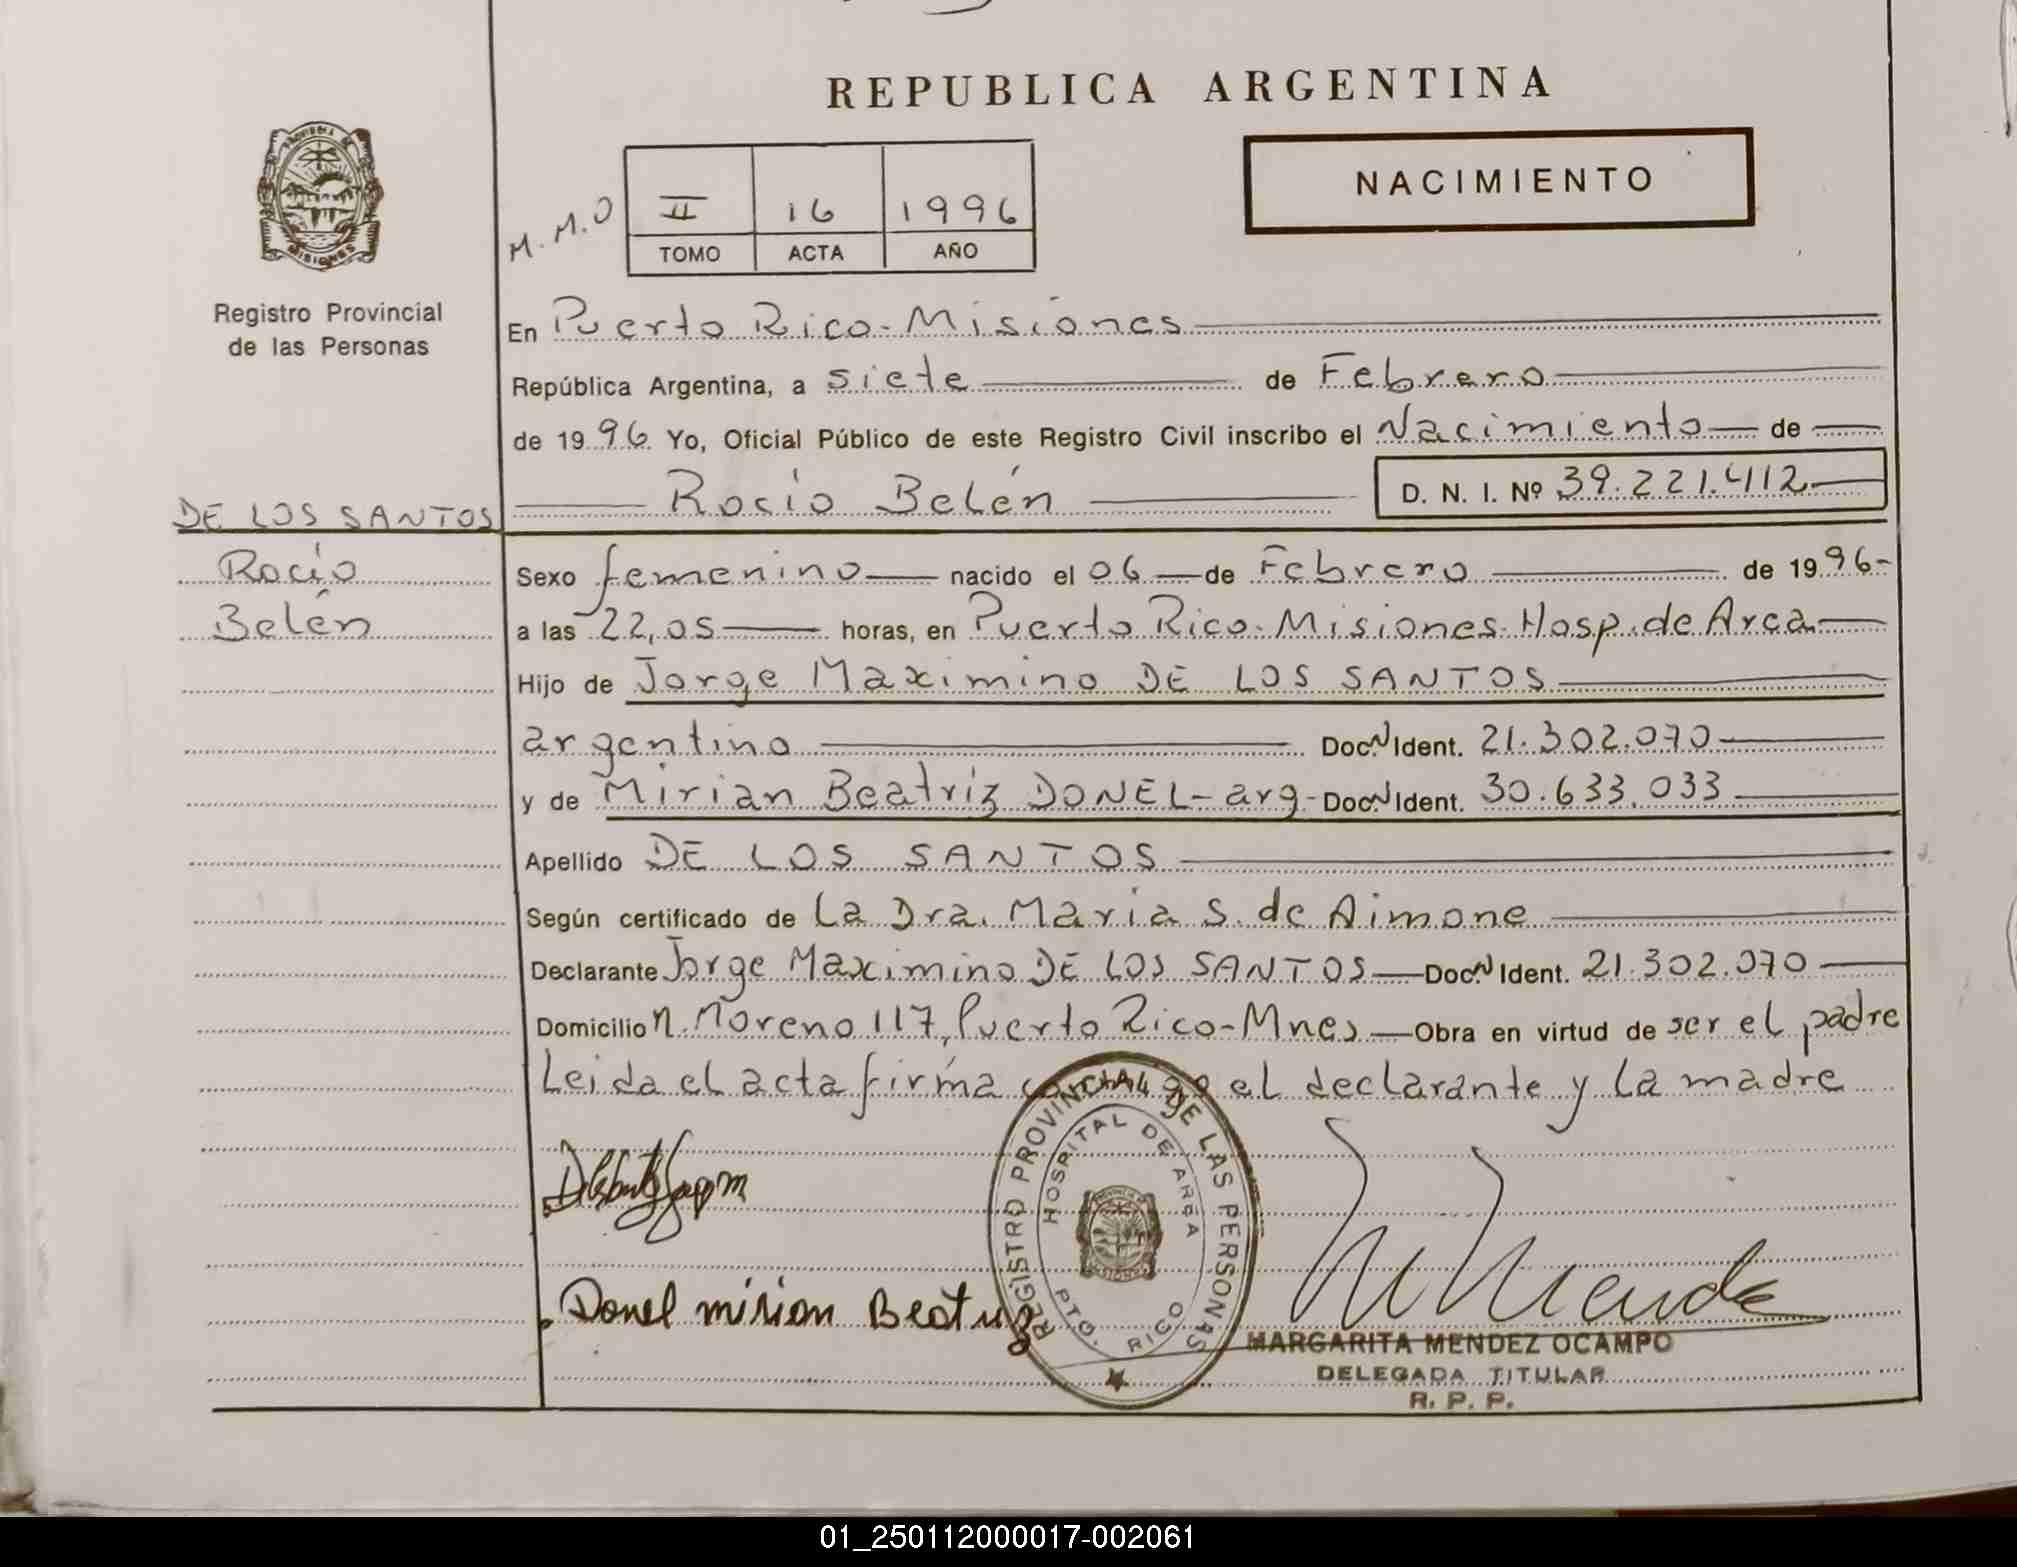 REPUBLICA ARGENTINA
NACIMIENTO
M.M.O
II 16 1996
TOMO ACTA AÑO
PROVINCIA DE
MISIONES
Registro Provincial
de las Personas
DE LOS SANTOS
Rocío
Belén
En Puerto Rico-Misiones
República Argentina, a siete de Febrero
de 1996 Yo, Oficial Público de este Registro Civil inscribo el Nacimiento de
Rocío Belén D. N. I. Nº 39.221.412
Sexo femenino nacido el 06 de Febrero de 1996-
a las 22,05 horas, en Puerto Rico-Misiones-Hosp.de Area
Hijo de Jorge Maximino DE LOS SANTOS
argentino Doc. N Ident. 21.302.070
y de Mirian Beatriz DONEL-arg- Doc. N Ident. 30.633.033
Apellido DE LOS SANTOS
Según certificado de La Dra. Maria S. de Aimone
Declarante Jorge Maximino DE LOS SANTOS Doc. N Ident. 21.302.070
Domicilio M. Moreno 117, Puerto Rico-Mnes Obra en virtud de ser el padre
Leida el acta firma el declarante y la madre
REGISTRO PROVINCIAL DE LAS PERSONAS
HOSPITAL DE AREA
PTO. RICO
Donel mirian Beatriz
MARGARITA MENDEZ OCAMPO
DELEGADA TITULAR
R. P. P.
01_250112000017-002061